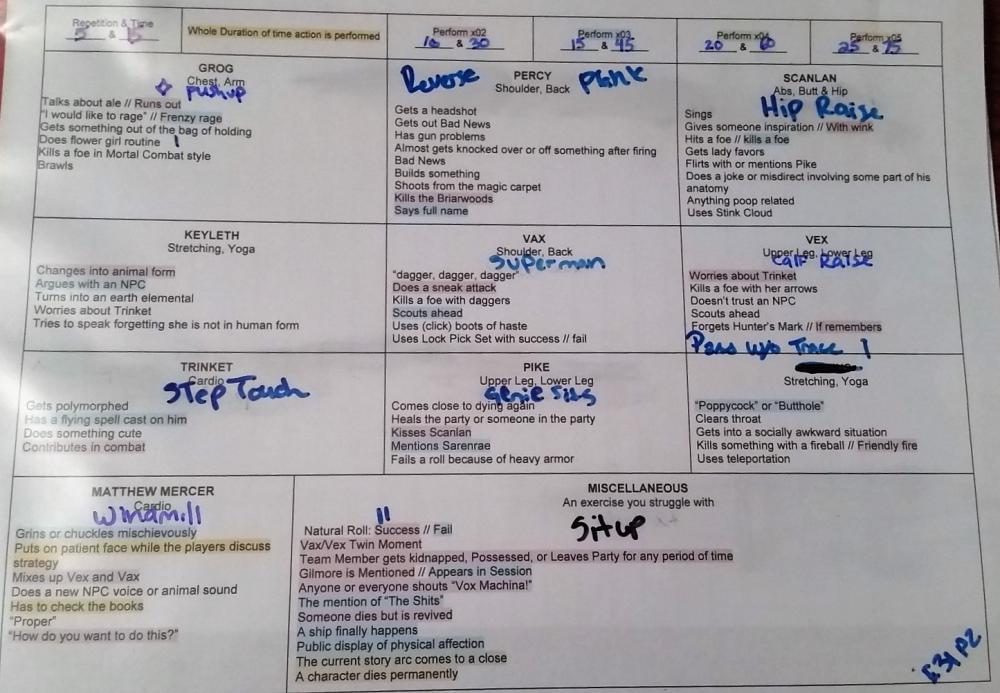 Repetition & Time
5 & 15
Whole Duration of time action is performed
Perform x02
10 & 30
Perform x03
15 & 45
Perform x04
20 & 60
Perform x05
25 & 75
GROG
Chest, Arm
pushup
Talks about ale // Runs out
"I would like to rage" // Frenzy rage
Gets something out of the bag of holding
Does flower girl routine
Kills a foe in Mortal Combat style
Brawls
Reverse Plank
PERCY
Shoulder, Back
Gets a headshot
Gets out Bad News
Has gun problems
Almost gets knocked over or off something after firing
Bad News
Builds something
Shoots from the magic carpet
Kills the Briarwoods
Says full name
SCANLAN
Abs, Butt & Hip
Hip Raise
Sings
Gives someone inspiration // With wink
Hits a foe // kills a foe
Gets lady favors
Flirts with or mentions Pike
Does a joke or misdirect involving some part of his
anatomy
Anything poop related
Uses Stink Cloud
KEYLETH
Stretching, Yoga
Changes into animal form
Argues with an NPC
Turns into an earth elemental
Worries about Trinket
Tries to speak forgetting she is not in human form
VAX
Shoulder, Back
Superman
"dagger, dagger, dagger"
Does a sneak attack
Kills a foe with daggers
Scouts ahead
Uses (click) boots of haste
Uses Lock Pick Set with success // fail
VEX
Upper Leg, Lower Leg
Calf Raise
Worries about Trinket
Kills a foe with her arrows
Doesn't trust an NPC
Scouts ahead
Forgets Hunter's Mark // If remembers
Pass w/o Trace |
TRINKET
Cardio
Step Touch
Gets polymorphed
Has a flying spell cast on him
Does something cute
Contributes in combat
PIKE
Upper Leg, Lower Leg
Genie Sits
Comes close to dying again
Heals the party or someone in the party
Kisses Scanlan
Mentions Sarenrae
Fails a roll because of heavy armor
Stretching, Yoga
"Poppycock" or "Butthole"
Clears throat
Gets into a socially awkward situation
Kills something with a fireball // Friendly fire
Uses teleportation
MATTHEW MERCER
Cardio
Windmill
Grins or chuckles mischievously
Puts on patient face while the players discuss
strategy
Mixes up Vex and Vax
Does a new NPC voice or animal sound
Has to check the books
"Proper"
"How do you want to do this?"
MISCELLANEOUS
An exercise you struggle with
Situp
Natural Roll: Success // Fail
Vax/Vex Twin Moment
Team Member gets kidnapped, Possessed, or Leaves Party for any period of time
Gilmore is Mentioned // Appears in Session
Anyone or everyone shouts "Vox Machina!"
The mention of "The Shits"
Someone dies but is revived
A ship finally happens
Public display of physical affection
The current story arc comes to a close
A character dies permanently
E31 P2